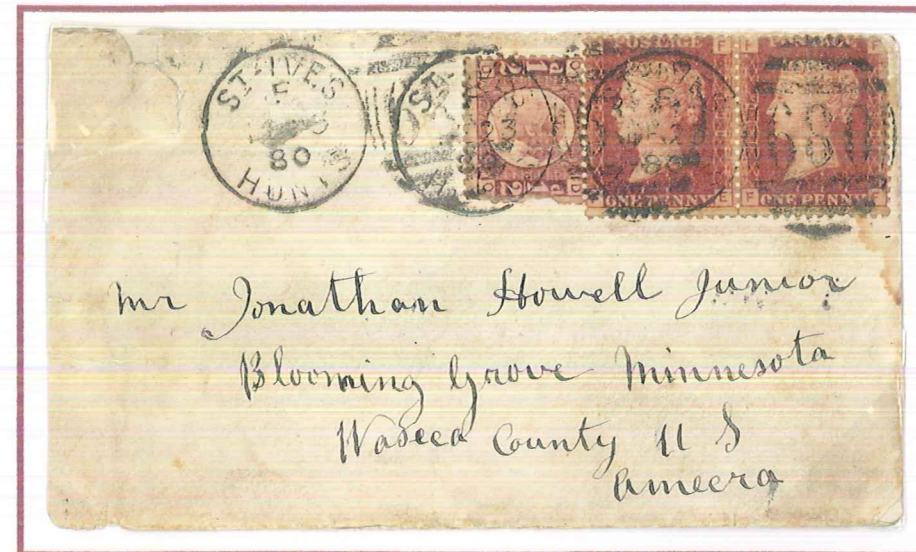 ST. IVES
F
80
HUNTS
POSTAGE
ONE PENNY
ONE PENNY
681
Mr Jonathan Howell Junior
Blooming Grove Minnesota
Waseca County U S
Ameera